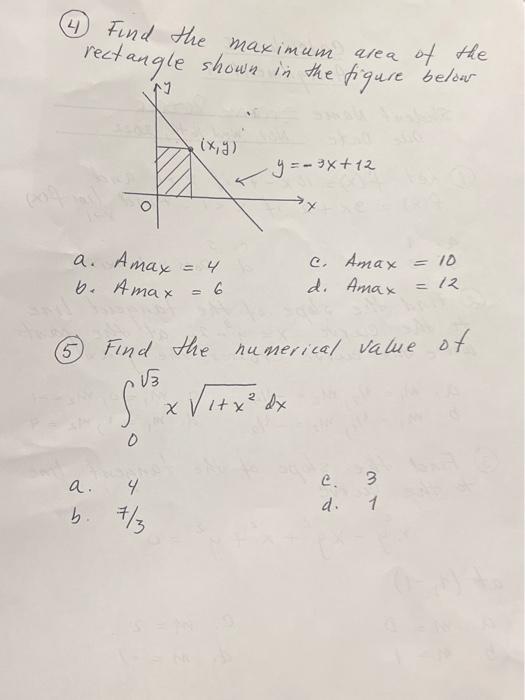 4 Find the maximum area of the
rectangle shown in the figure below
y
(x,y)
y = -3x+12
O
x
a. Amax = 4
c. Amax = 10
b. Amax = 6
d. Amax = 12
5 Find the numerical value of
∫₀^√3 x √(1+x²) dx
a. 4
c. 3
b. 7/3
d. 1